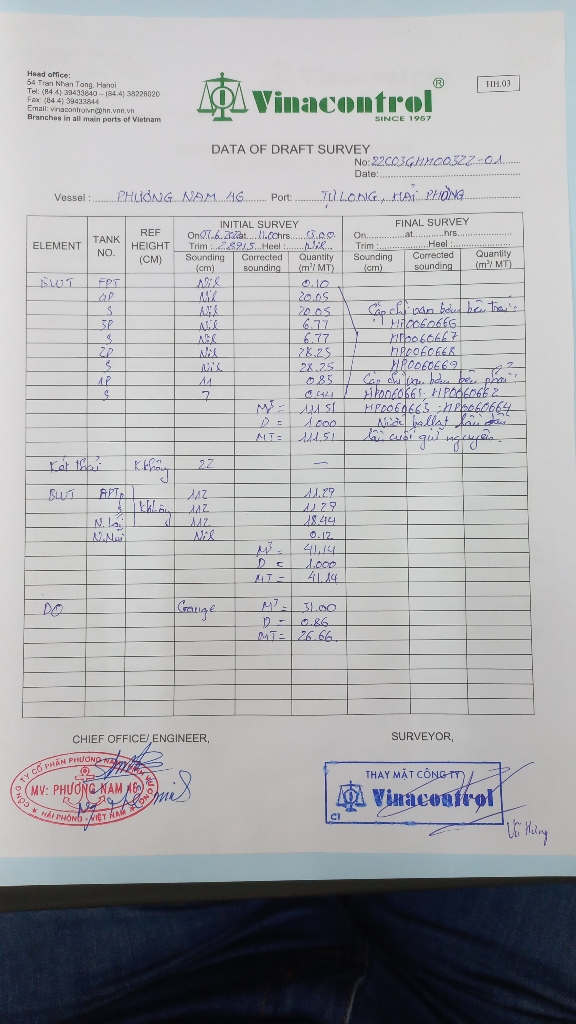 Head office:
54 Tran Nhan Tong, Hanoi
Tel: (84.4) 39433840 – (84.4) 38226020
Fax: (84.4) 39433844
Email: vinacontrolvn@hn.vnn.vn
Branches in all main ports of Vietnam
Vinacontrol ®
SINCE 1957
HH.03
DATA OF DRAFT SURVEY
No: 22C03GHH00322-01
Date:
Vessel : PHƯƠNG NAM 46 Port: TỰ LONG, HẢI PHÒNG
ELEMENT TANK NO. REF HEIGHT (CM) INITIAL SURVEY FINAL SURVEY
On 07.6.2022 at 11.00 hrs 13.00 On at hrs
Trim : 2.8915 Heel : Nil Trim : Heel :
Sounding (cm) Corrected sounding Quantity (m³/ MT) Sounding (cm) Corrected sounding Quantity (m³/ MT)
BWT FPT Nil 0.10
4P Nil 20.05
S Nil 20.05 Cặp chì van bơm bên trái:
3P Nil 6.77 HP0060666
S Nil 6.77 HP0060667
2P Nil 28.25 HP0060668
S Nil 28.25 HP0060669
1P 11 0.85 Cặp chì van bơm bên phải:
S 7 0.44 HP0060661; HP0060662
M³ = 111.51 HP0060663; HP0060664
D = 1.000 Nước ballat lần đầu
MT = 111.51 lần cuối giữ nguyên
Két thải Không 22 —
BWT APT P Không 112 11.29
S 112 11.29
112 18.44
Nil 0.12
M³ = 41.14
D = 1.000
MT = 41.14
DO Gauge M³ = 31.00
D = 0.86
MT = 26.66
CHIEF OFFICE/ ENGINEER, SURVEYOR,
MV: PHƯƠNG NAM 46
HẢI PHÒNG - VIỆT NAM
THAY MẶT CÔNG TY
Vinacontrol
C1
Vũ Hùng